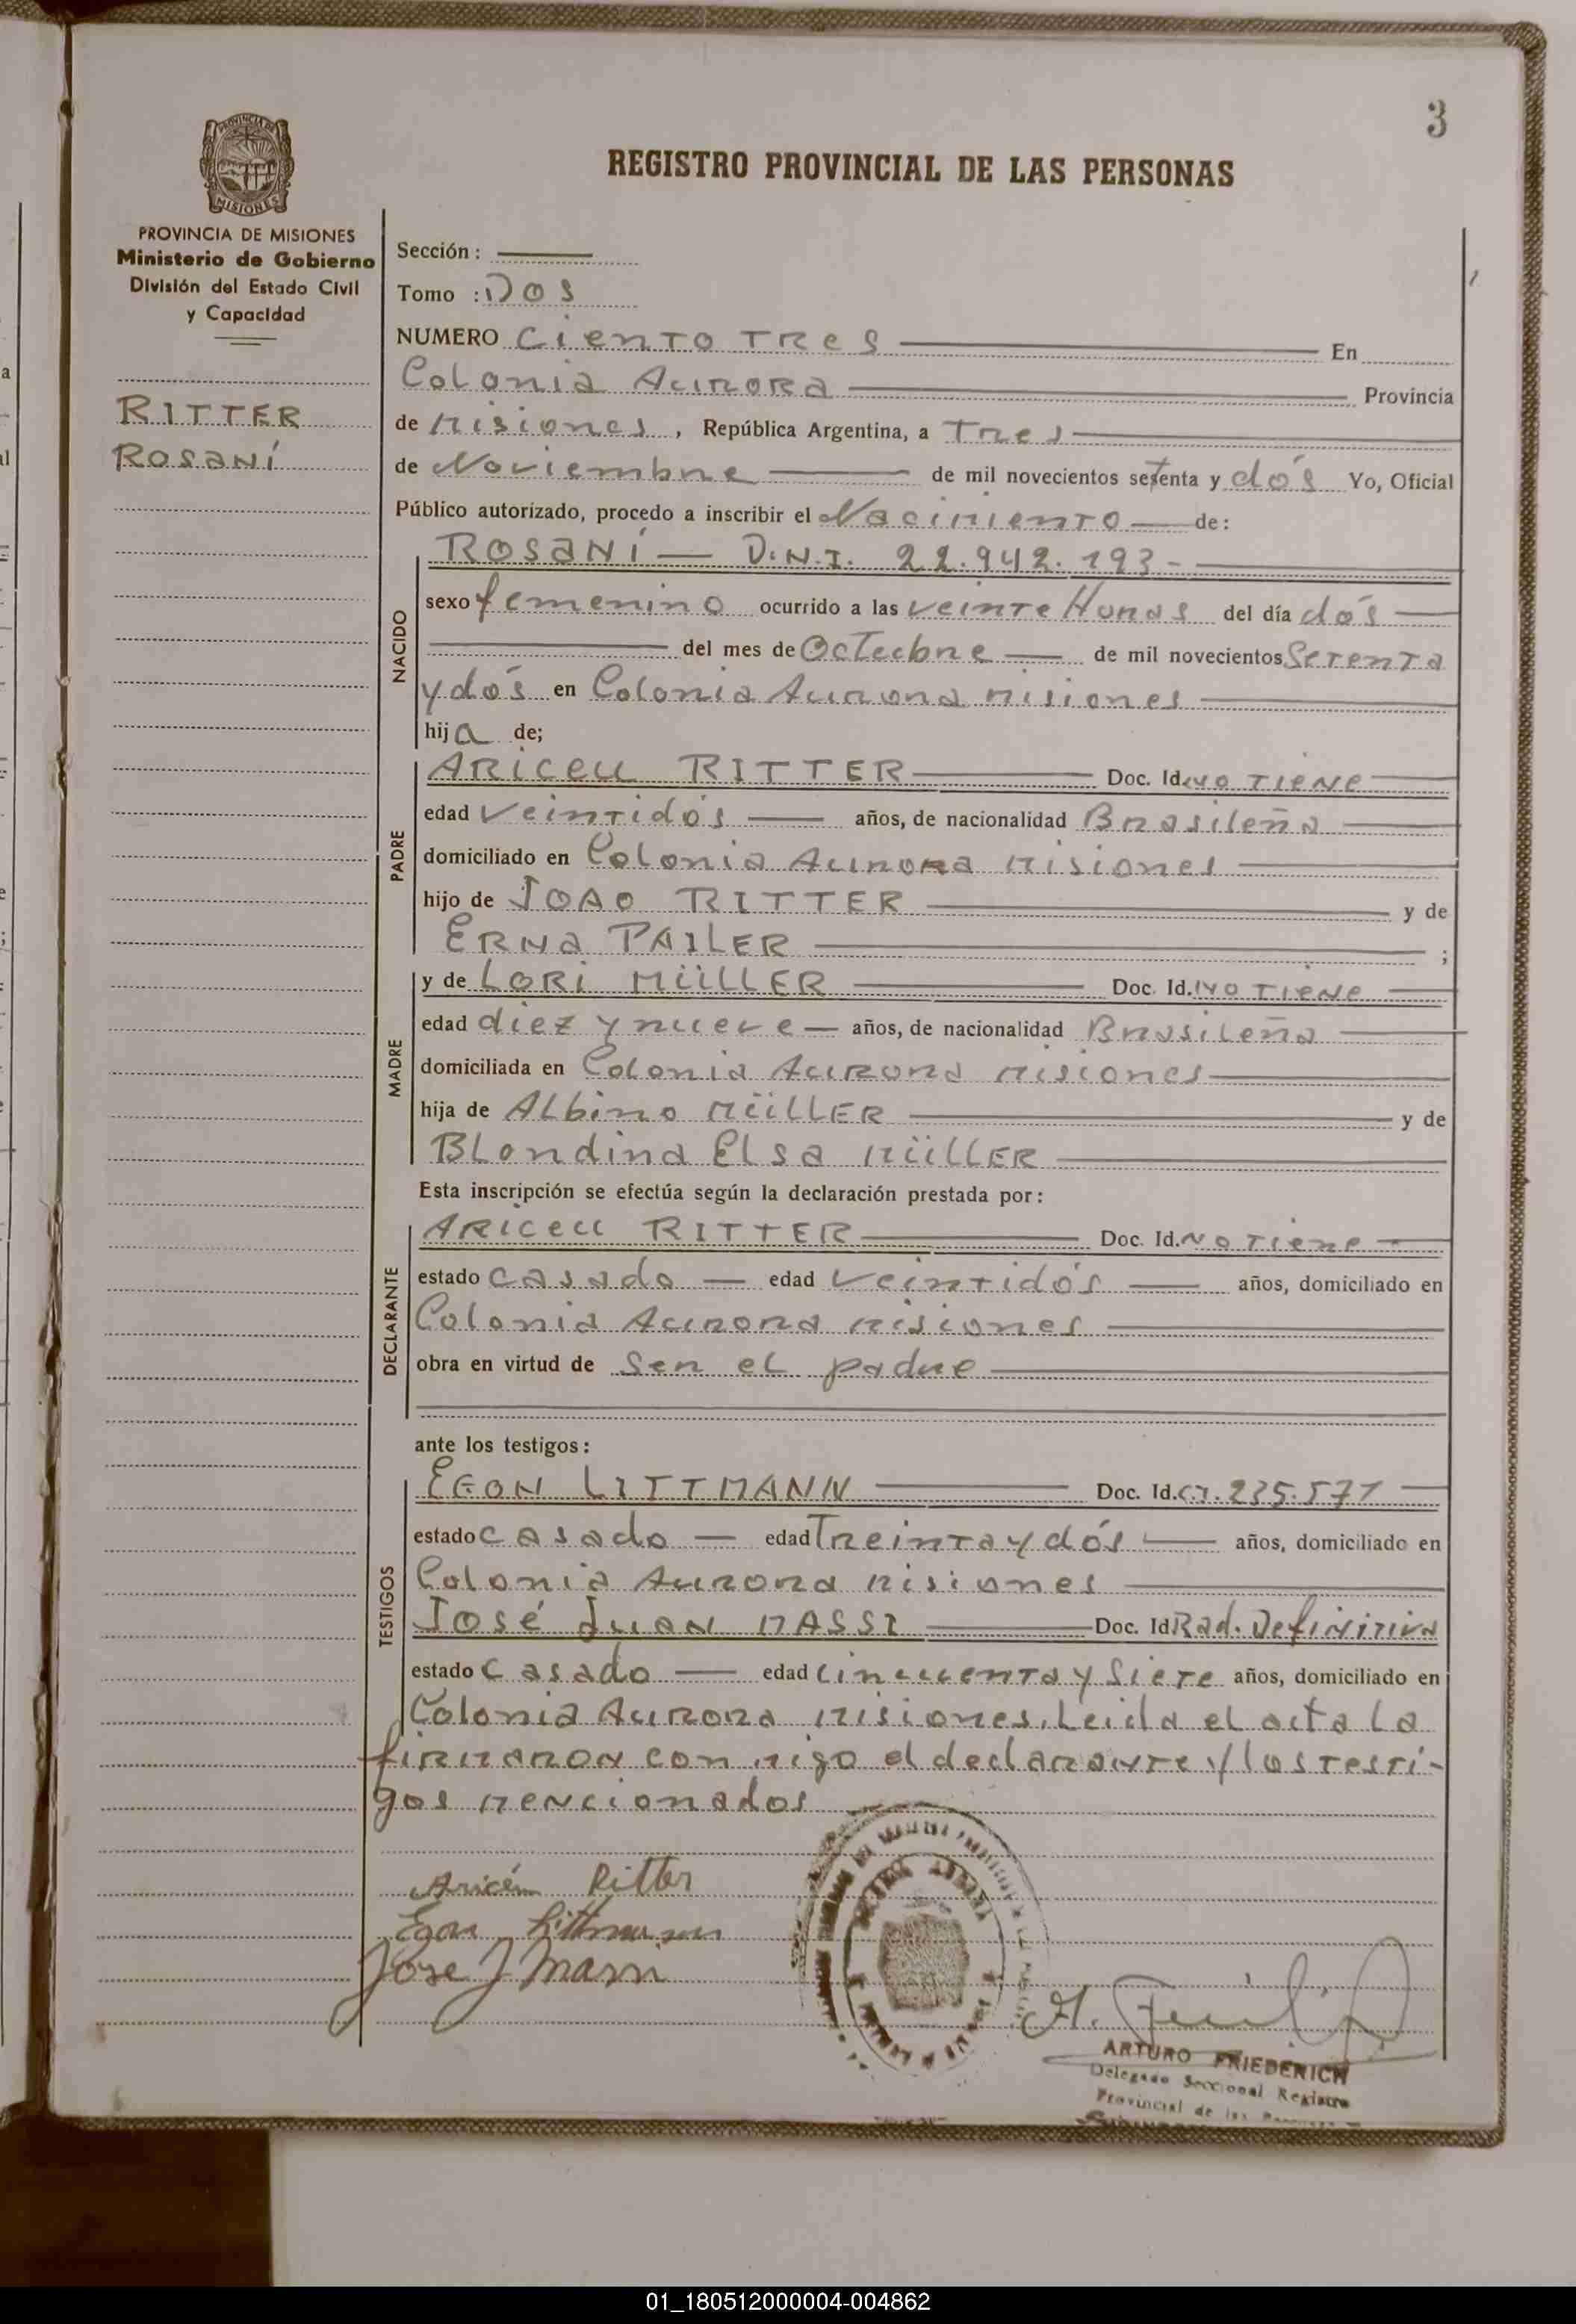 3
PROVINCIA DE
MISIONES
REGISTRO PROVINCIAL DE LAS PERSONAS
PROVINCIA DE MISIONES
Ministerio de Gobierno
División del Estado Civil
y Capacidad
RITTER
ROSANÍ
Sección :
Tomo : DOS
NUMERO Ciento Tres En
Colonia Aurora Provincia
de Misiones, República Argentina, a Tres
de Noviembre de mil novecientos setenta y dós Yo, Oficial
Público autorizado, procedo a inscribir el Nacimiento de:
NACIDO
ROSANÍ — D.N.I. 22.942.193-
sexo femenino ocurrido a las veinte Horas del día dós
del mes de Octubre de mil novecientos Setenta
y dós en Colonia Aurora Misiones
hija de;
PADRE
ARICEU RITTER Doc. Id. no TIENE
edad veintidós años, de nacionalidad Brasileña
domiciliado en Colonia Aurora Misiones
hijo de JOAO RITTER y de
ERNA PAILER ;
MADRE
y de LORI MÜLLER Doc. Id. NO TIENE
edad diez y nueve años, de nacionalidad Brasileña
domiciliada en Colonia Aurora Misiones
hija de Albino MÜLLER y de
Blondina Elsa MÜLLER
Esta inscripción se efectúa según la declaración prestada por:
DECLARANTE
ARICEU RITTER Doc. Id. NO Tiene
estado casado edad veintidós años, domiciliado en
Colonia Aurora Misiones
obra en virtud de Ser el padre
ante los testigos:
TESTIGOS
EGON LITTMANN Doc. Id. C.I. 235.571
estado casado edad Treinta y dós años, domiciliado en
Colonia Aurora Misiones
JOSÉ JUAN MASSI Doc. Id Rad. Definitiva
estado Casado edad Cincuenta y Siete años, domiciliado en
Colonia Aurora Misiones. Leida el acta la
firmaron con migo el declarante y los testi-
gos mencionados
Aricéu Ritter
Egon Littmann
Jose J Massi
ARTURO FRIEDERICH
Delegado Seccional Registro
Provincial de las
01_180512000004-004862